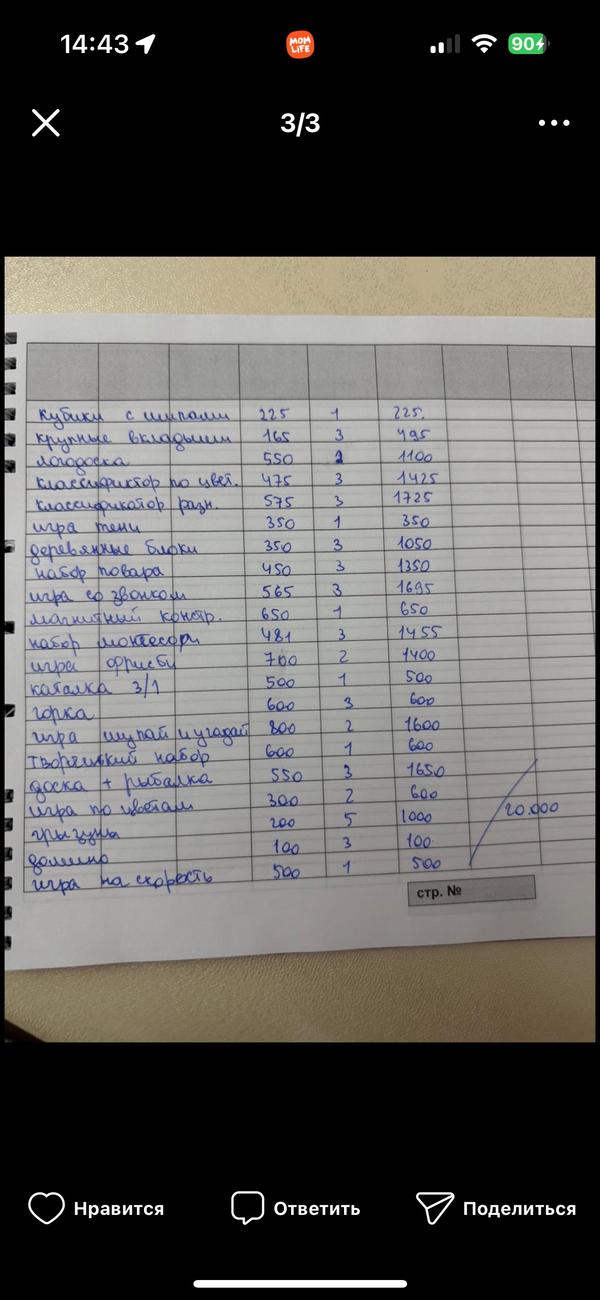 14:43
MOM LIFE
90
3/3
кубики с шипами 225 1 225.
крупные вкладыши 165 3 495
логодоска 550 2 1100
классификтор по цвет. 475 3 1425
классификатор разн. 575 3 1725
игра тени 350 1 350
деревянные блоки 350 3 1050
набор повара 450 3 1350
игра со звонком 565 3 1695
магнитный констр. 650 1 650
набор монтесори 481 3 1455
игра фрисби 700 2 1400
каталка 3/1 500 1 500
горка 600 3 600
игра щупай и угадай 800 2 1600
творческий набор 600 1 600
доска + рыбалка 550 3 1650
игра по цветам 300 2 600
грызуны 200 5 1000
20.000
домино 100 3 100
игра на скорость 500 1 500
стр. №
Нравится
Ответить
Поделиться